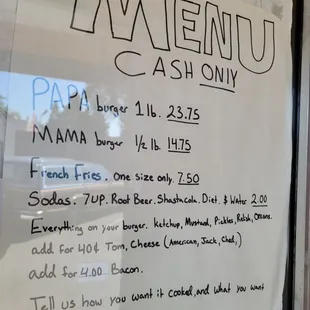 MENU
CASH ONLY
PAPA burger 1 lb. 23.75
MAMA burger 1/2 lb. 14.75
French Fries. One size only. 7.50
Sodas: 7UP. Root Beer. Shasta cola. Diet. & Water 2.00
Everything on your burger. Ketchup, Mustard, Pickles, Relish, Onions.
add for 40¢ Tom, Cheese (American, Jack, Ched,)
add for 4.00 Bacon.
Tell us how you want it cooked, and what you want